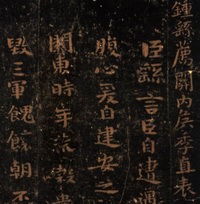 鍾繇薦關内侯季直表
臣繇言臣自遭遇
腹心爰自建安之
關東時年荒穀貴
毀三軍餽饟朝不